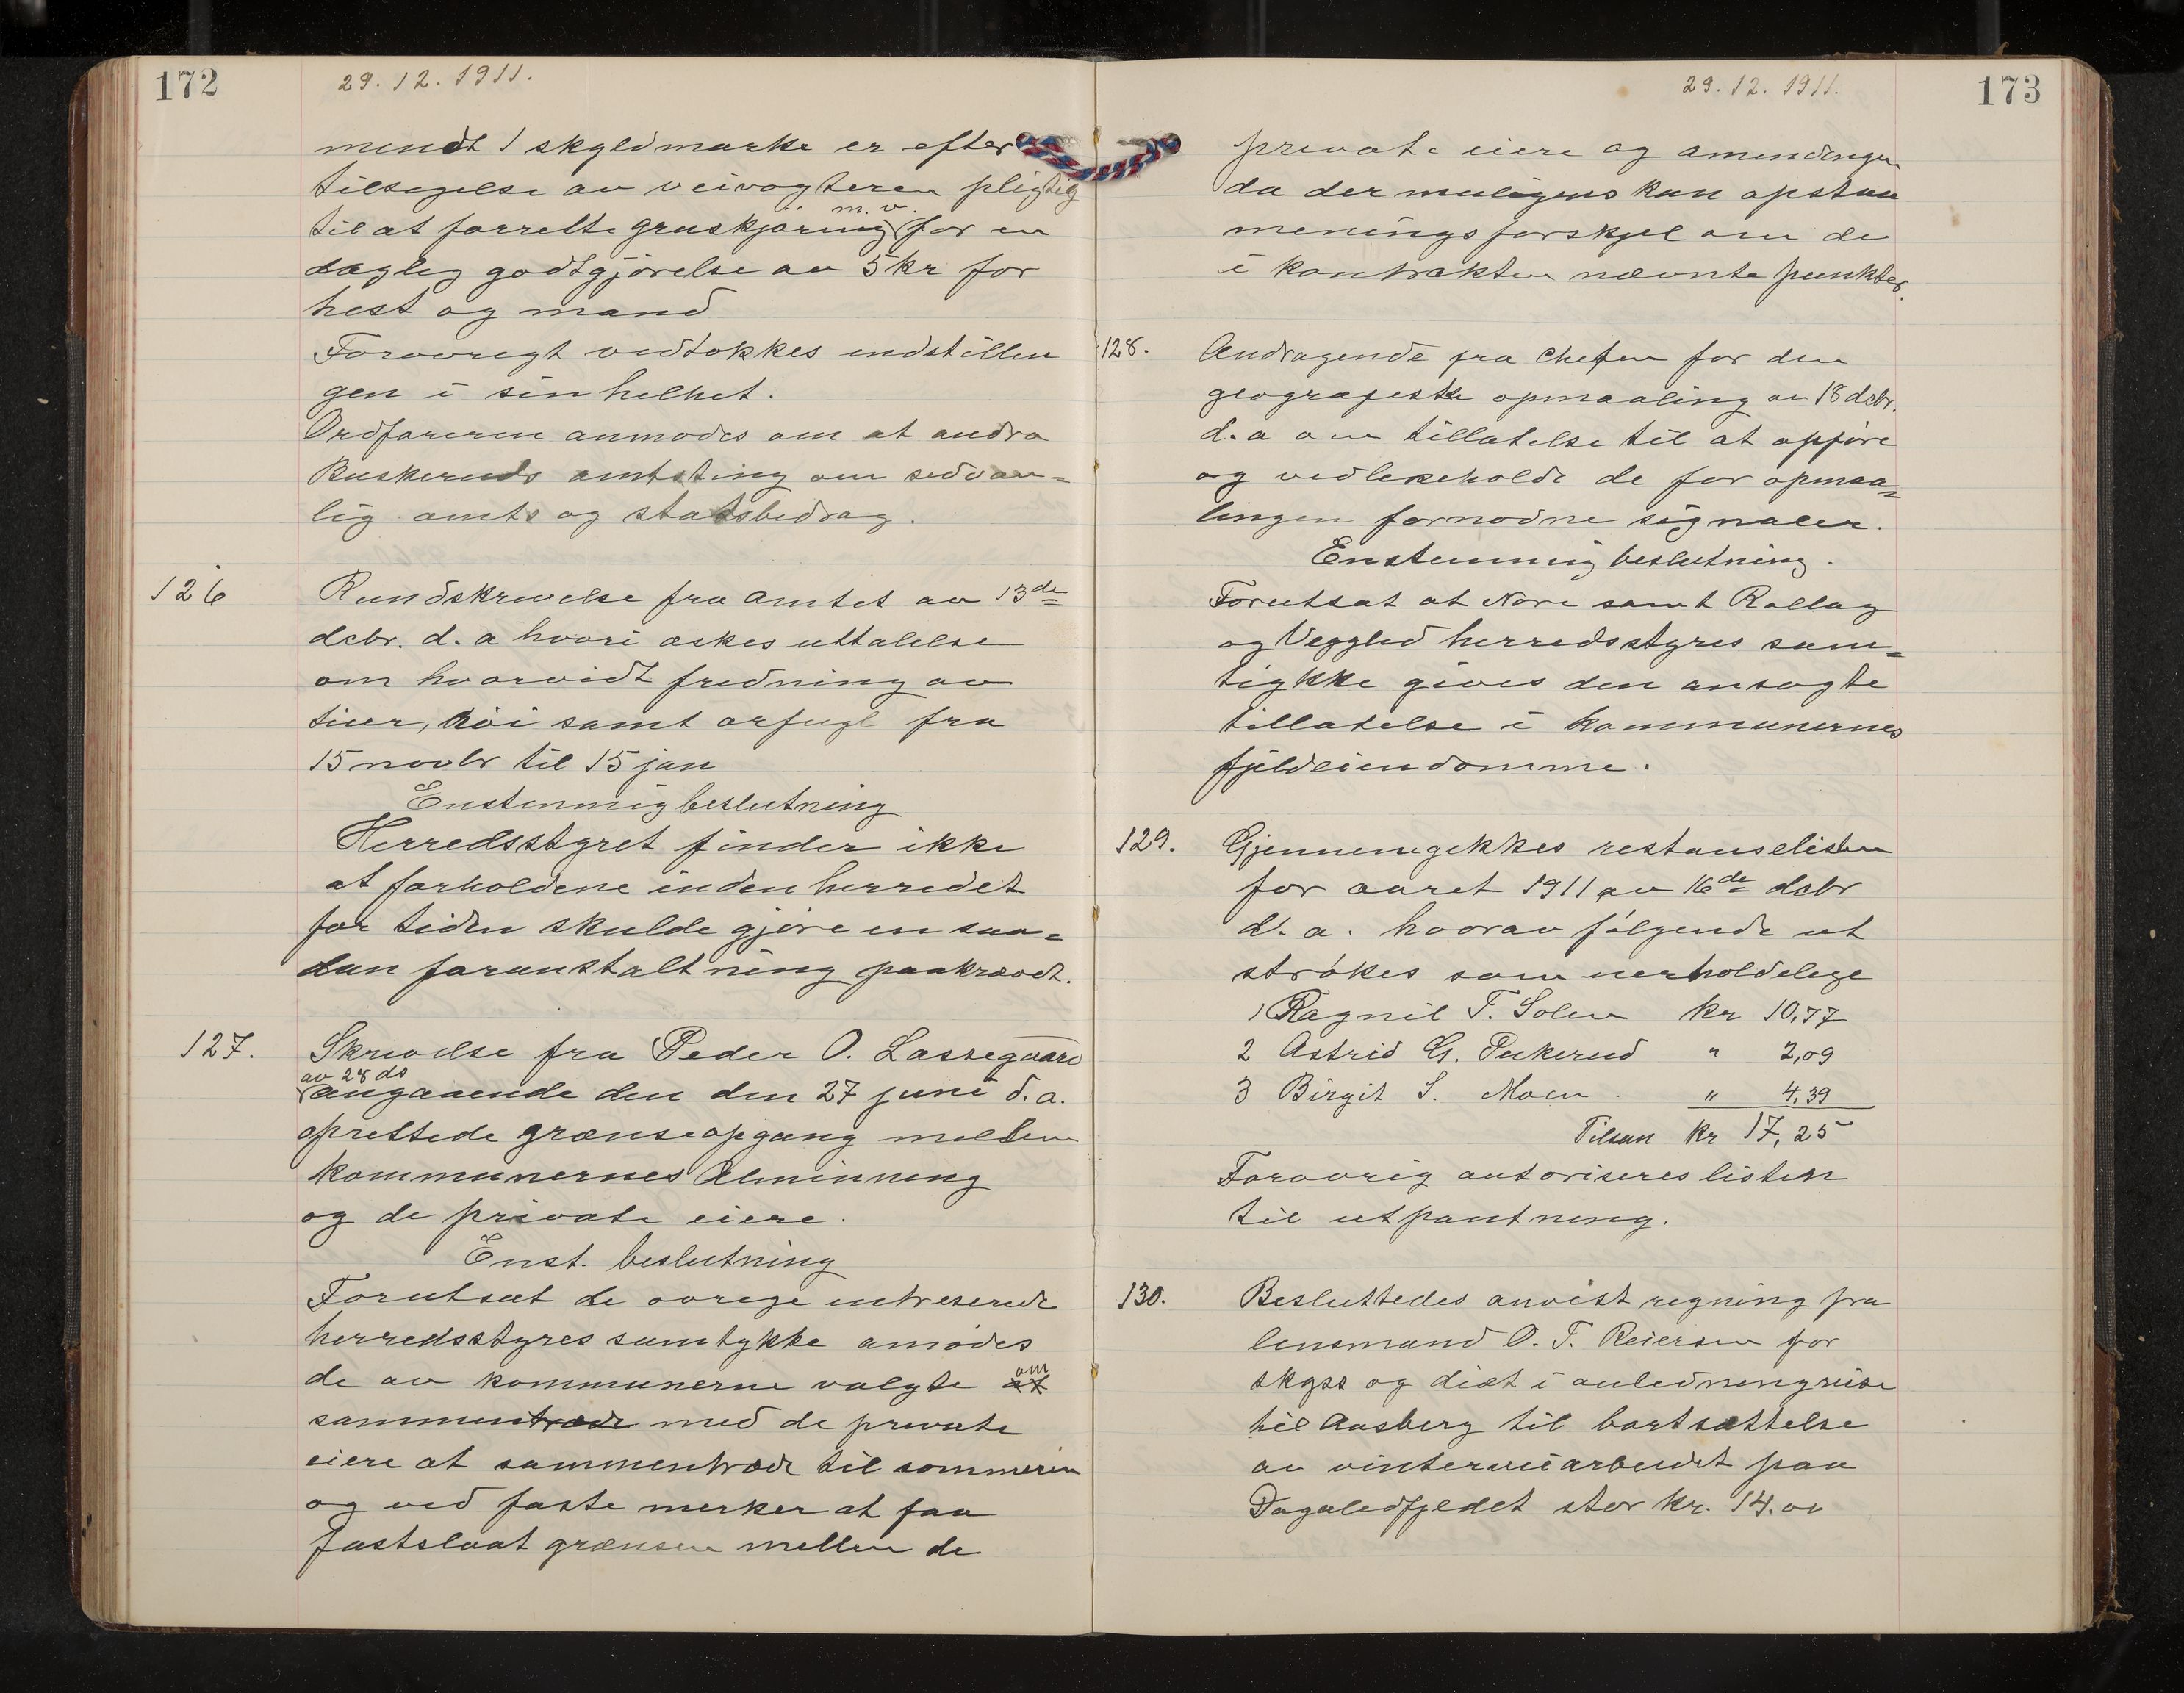 172
29.12.1911.
mindt 1 skyldmarke er efter
tilsigelse av veivogteren pligtig
til at forrette gruskjöring m.v. for en
daglig godtgjörelse av 5 kr for
hest og mand
Forøvrigt vedtokkes indstillin
gen i sin helhet.
Ordføreren anmodes om at andra
Buskeruds amtsting om sedvan=
lig amts og statsbedrag.
126
Rundskrivelse fra Amtet av 13de
dcbr. d.a hvori æskes uttalelse
om hvorvidt fredning av
tiur, röi samt orfugl fra
15 novbr til 15 jan
Enstemmig beslutning
Herredsstyret finder ikke
at forholdene inden herredet
for tiden skulde gjöre en saa=
dan foranstaltning paakrævet.
127.
Skrivelse fra Peder O. Lassegaard
av 28 ds
angaaende den den 27 juni d.a.
oprettede grænseopgang mellem
kommunernes Alminning
og de private eiere.
Enst. beslutning
Forutsat de øvrige intreserede
herredsstyres samtykke amodes
de av kommunerne valgte at om
sammentræde med de private
eiere at sammentræde til sommeren
og ved faste merker at faa
fastslaat grænsen mellem de
29.12.1911.
173
private eiere og aminingen
da der muligens kan opstaa
meningsforskjel om de
i kontrakten nævnte punkter.
128.
Andragende fra Chefen for den
geografiske opmaaling av 18 dcbr.
d.a om tillatelse til at opföre
og vedlikeholde de for opmaa=
lingen fornødne signaler.
Enstemmig beslutning.
Forutsat at Nore samt Rollag
og Vegglid herredsstyres sam=
tykke gives den ansøgte
tillatelse i kommunernes
fjeldeiendomme.
129.
Gjennemgikkes restanselisten
for aaret 1911 av 16de dcbr
d.a. hvorav følgende ut
strøkes som uerholdelige
1 Ragnil T. Solem kr 10,77
2 Astrid G. Pukerud " 2,09
3 Birgit S. Moen. " 4.39
Tilsan kr 17,25
Forøvrig autoriseres listen
til utpantning.
130.
Besluttedes anvist regning fra
lensmand O. T. Reiersen for
skyss og diæt i anledning reise
til Aasberg til bortsættelse
av vinterveiarbeidet paa
Dagaliefjeldet stor kr. 14.00